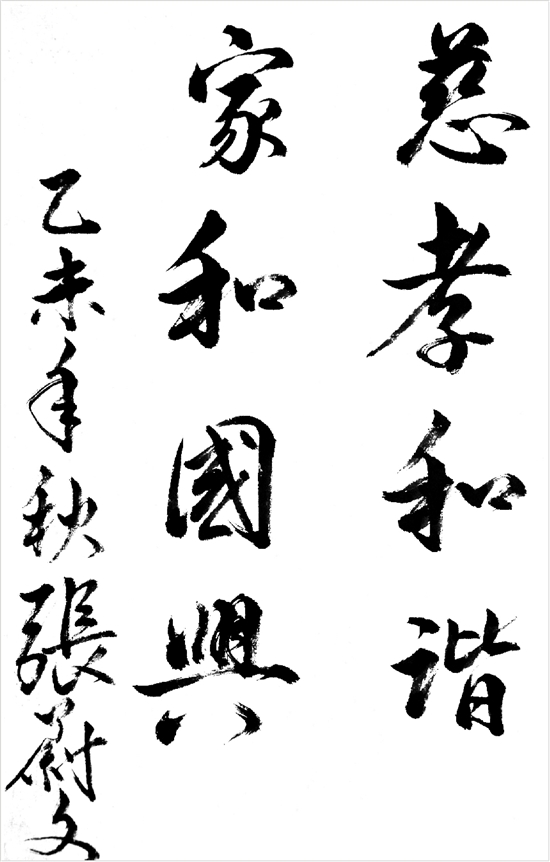 慈孝和谐
家和國興
乙未年秋張蔚文